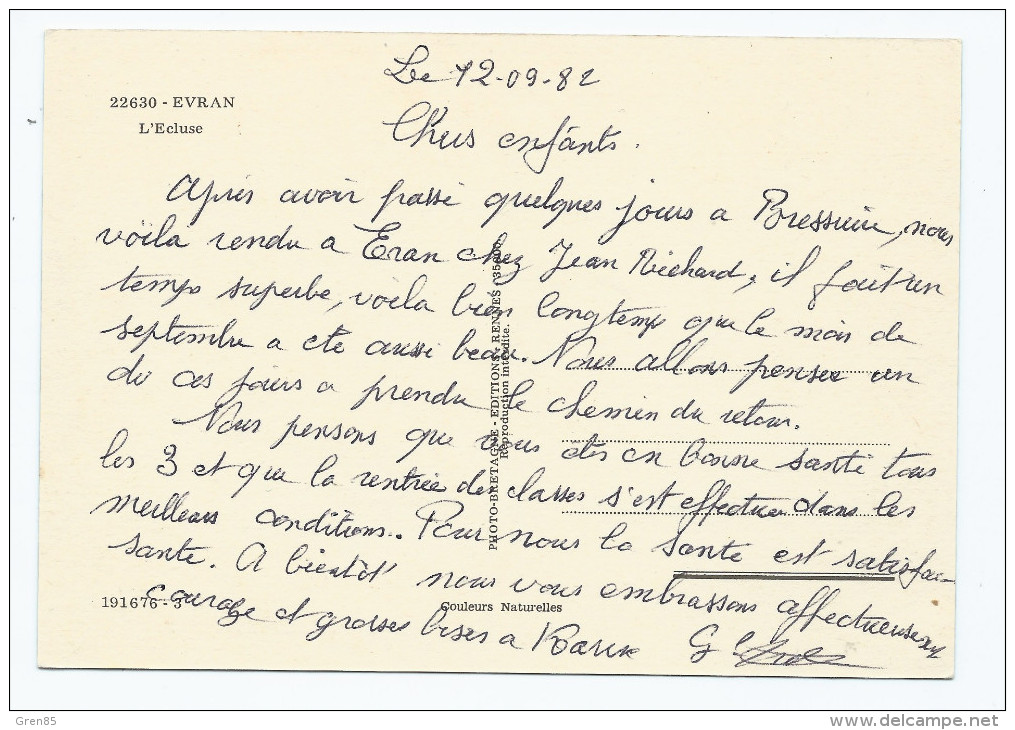 22630 - EVRAN
L'Ecluse
Le 12-09-82
Chers enfants.
Après avoir passé quelques jours a Bressuire, nous
voila rendu a Evran chez Jean Richard, il fait un
temps superbe, voila bien longtemps que le mois de
septembre a été aussi beau. Nous allons penser un
de ces jours a prendre le chemin du retour.
Nous pensons que vous êtes en bonne santé tous
les 3 et que la rentrée des classes s'est effectuée dans les
meilleurs conditions. Pour nous la santé est satisfai-
sante. A bientôt nous vous embrassons affectueusement
courage et grosses bises a
PHOTO-BRETAGNE - EDITIONS - RENNES (35000)
Reproduction interdite.
191676 - 3
Couleurs Naturelles
Gren85
www.delcampe.net